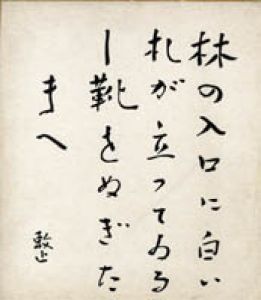 林の入口に白い
札が立つてゐる
―靴をぬぎた
まへ